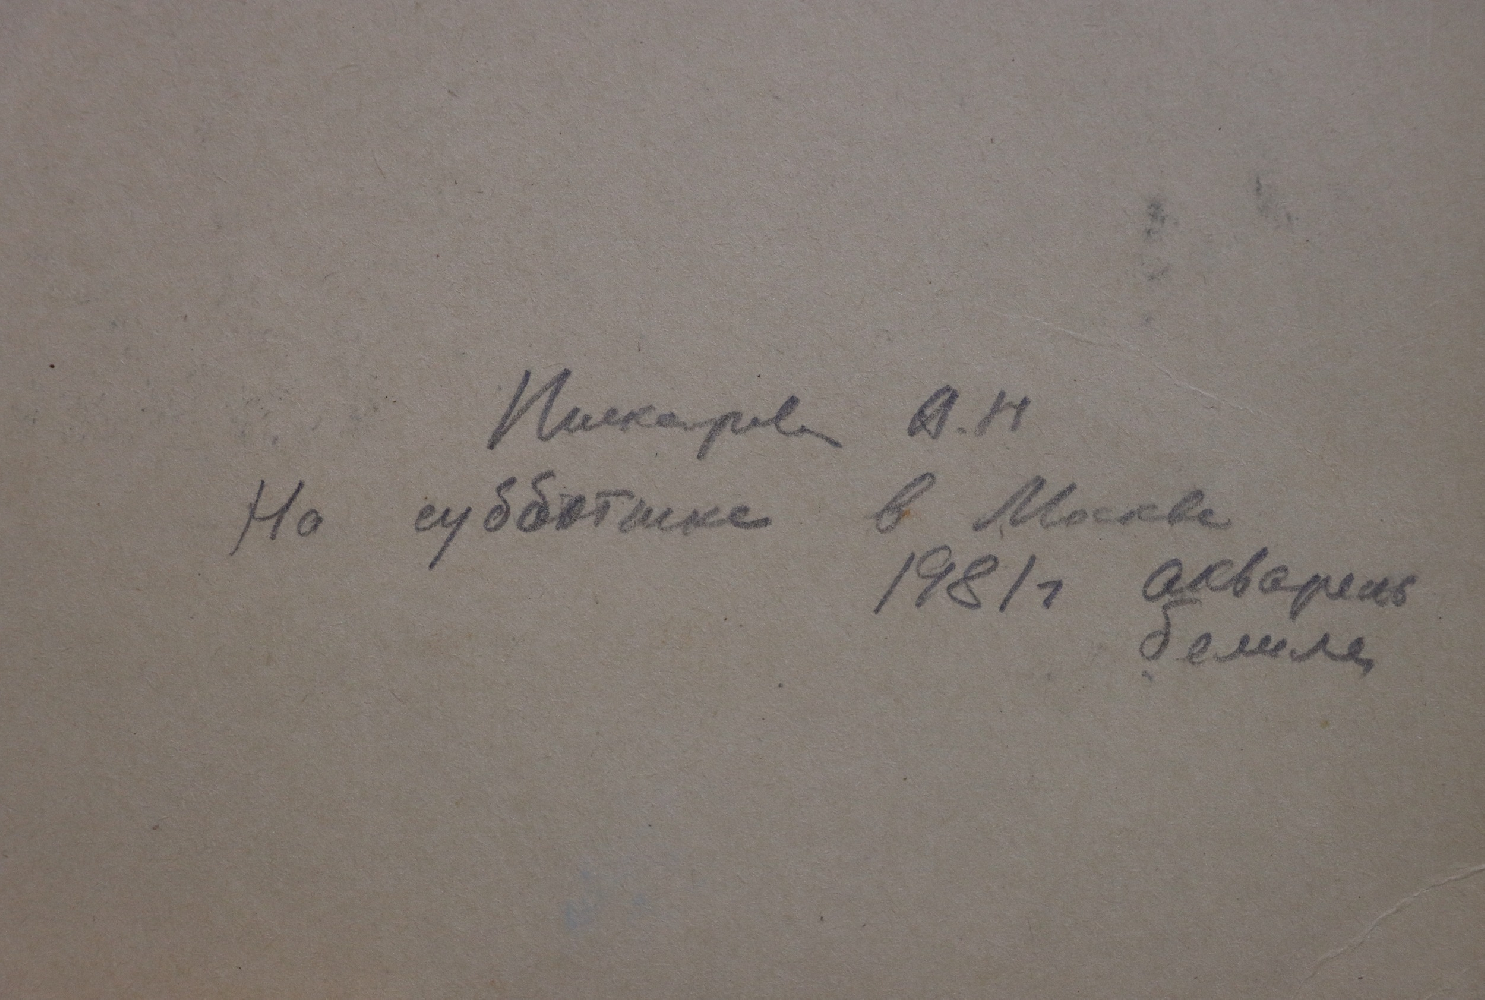 А.Н
На субботнике в Москве
1981г акварель
белила